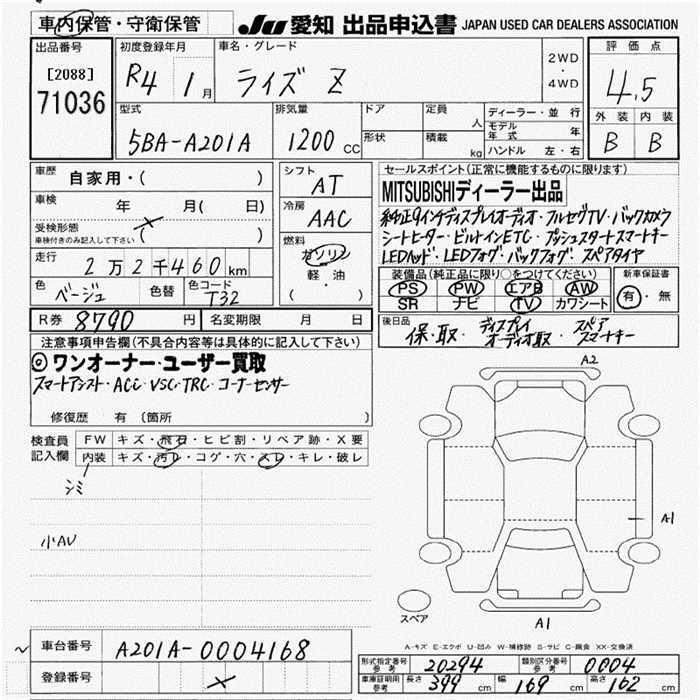 車内保管・守衛保管
JU 愛知 出品申込書 JAPAN USED CAR DEALERS ASSOCIATION
出品番号
[2088]
71036
初度登録年月
R4 1月
車名・グレード
ライズ Z
2WD
・
4WD
評価点
4.5
外装 内装
B B
型式
5BA-A201A
排気量
1200 CC
ドア
形状
定員 人
積載 kg
ディーラー・並行
モデル年式 年
ハンドル 左・右
車歴
自家用・( )
車検
年 月( 日)
受検形態
車検付きのみ記入して下さい ( )
走行
2万2千460km
色
ベージュ
色替
色コード
T32
シフト
AT
冷房
AAC
燃料
ガソリン
軽・油
( )
セールスポイント(正常に機能するものに限ります)
MITSUBISHIディーラー出品
純正9インチディスプレイオーディオ・フルセグTV・バックカメラ
シートヒーター・ビルトインETC・プッシュスタートスマートキー
LEDヘッド・LEDフォグ・バックフォグ・スペアタイヤ
装備品(純正品に限り○をつけてください)
PS PW エアB AW
SR ナビ TV カワシート
新車保証書
有・無
R券 8790 円
名変期限 月 日
後日品
保・取・ディスプレイオーディオ取・スペアスマートキー
注意事項申告欄(不具合内容等は具体的に記入して下さい)
◎ワンオーナー・ユーザー買取
スマートアシスト・ACC・VSC・TRC・コーナーセンサー
修復歴 有 (箇所 )
検査員
記入欄
FW キズ・飛石・ヒビ割・リペア跡・X要
内装 キズ・汚レ・コゲ・穴・スレ・キレ・破レ
シミ
小AU
A2
A1
A1
スペア
A-キズ E-エクボ U-凹み W-補修跡 S-サビ C-腐食 XX-交換済
車台番号
A201A-0004168
登録番号
型式指定番号
参考
20294
類別区分番号
参考
0004
車庫証明用
参考
長さ 399 cm
幅 169 cm
高さ 162 cm